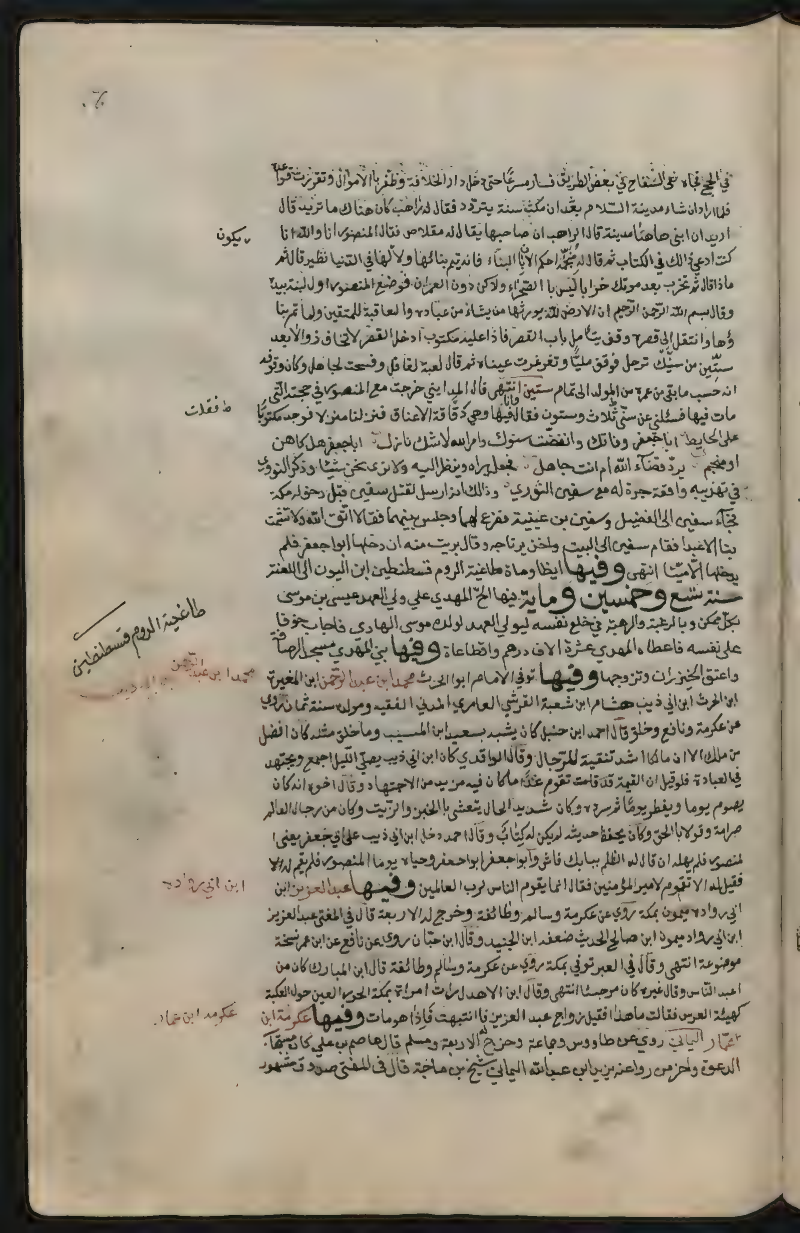 في الحج فجاه نعى السفاح في بعض الطريق فسار مسرعا حتى دخل دار الخلافة وظفر بالأموال وتقررت قواعد
فلما اراد انشاء مدينة السلام بغداد مكث سنة يتردد فقال له راهب كان هناك ما تريد قال
اريد ان ابنى هاهنا مدينة قال الراهب ان صاحبها يقال له مقلاص فقال المنصور انا والله انا
يكون
كنت ادعى ذلك في الكتاب ثم قال له منجمه احكم الآن البناء فانه يتم بنائها ولا لها في الدنيا نظير قال ثم
ماذا قال ثم تخرب بعد موتك خرابا ليس با الصحراء ولاكن دون العمران فوضع المنصور اول لبنة بيده
وقال بسم الله الرحمن الرحيم ان الارض لله يورثها من يشاء من عباده والعاقبة للمتقين ولما تم بنا
ؤها وانتقل الى قصره وقف يتامل باب القصر فاذا عليه مكتوب ادخل القصر لا تخاف زوالا بعد
ستين من سنيك ترحل فوقف مليا وتغرغرت عيناه ثم قال لعبة لغافل وفسحت لجاهل وكان وقوفه
انه حسب ما بقي من عمره من المولد الى تمام ستين انتهى قال الميدايني خرجت مع المنصور في حجته التي
فقلت
مات فيها فسئلني عن سني ثلاث وستون فقال وانا فيها وهي دقاقة الاعناق فنزلنا منزلا فوجد مكتوبا
على الحايط ابا جعفر وفاتك وانقضت سنوك وامر الله لا شك نازل اباجعفر هل كاهن
او منجم يرد قضاء الله ام انت جاهل فجعل يراه وينظر اليه ولا نرى نحن شيئا وذكر النووي
في تهذيبه واقعة جرة له مع سفين الثوري وذالك انه ارسل لقتل سفين قبل دخوله مكة
فجآء سفين الى الفضيل وسفين بن عيينة ففزع لهما وجلس بينهما فقالا اتق الله ولا تشمت
بنا الاعدا فقام سفين الى البيت واخذ برتاجه وقال بريت منه ان دخلها ابوا جعفر فلم
يدخلها إلا ميتا انتهى وفيها ايظا وماة طاغية الروم قسطنطين ابن اليون الى اللعنة
طاغية الروم قسطنطين
سنة تسع وخمسين وماية فيها الح المهدي علي ولي العهد عيسى بن موسى
بكل ممكن وبالرغبة والرهبة في خلع نفسه ليولي العهد لولده موسى الهادى فاجاب خوفا
على نفسه فاعطاه المهدي عشرة الاف درهم واقطاعة وفيها بنى المهدي مسجد الرصافة
محمد ابن عبد الرحمن
واعتق الخيزران وتزوجها وفيها توفي الامام ابوا الحرث محمد ابن عبد الرحمن ابن المغيرة
ابن الحرث ابن ابي ذيب هشام ابن شعبة القرشي العامري المدني الفقيه ومولده سنة ثمانين روى
عن عكرمة ونافع وخلق قال احمد ابن حنبل كان يشبه بسعيد ابن المسيب وما خلق مثله كان افضل
من ملك الا ان مالكا اشد تنقية للرجال وقال الواقدي كان ابن ابي ذيب يصلي الليل اجمع ويجتهد
في العبادة فلوقيل ان القيمة قد قامت تقوم غدا ما كان فيه مزيد من الاجتهاد وقال اخوه انه كان
يصوم يوما ويفطر يوما ثم سرده وكان شديد الحال يتعشى بالخبز والزيت وكان من رجال العالم
صرامة وقولا بالحق وكان يحفظ حديثه لم يكن له كتاب وقال احمد دخل ابن ابي ذيب على ابي جعفر يعنى ا
لمنصور فلم يهله ان قال له الظلم ببابك فاش وابوا جعفر ابوا جعفر وجياه يوما المنصور فلم يقم له الا
فقيل له الا تقوم لامير المؤمنين فقال انما يقوم الناس لرب العالمين وفيها عبد العزيز ابن
ابن ابي رواد
ابي رواد ميمون بمكة روي عن عكرمة وسالم وطائفة وخرج له الاربعة قال في المغنى عبد العزيز
ابن ابي رواد ميمون ابن صالح الحديث ضعفه ابن الجنيد وقال ابن حبان روى عن نافع عن ابن عمر نسخة
موضوعة انتهى وقال في العبر توفي بمكة روي عن عكرمة وسالم وطائفة قال ابن المبارك كان من
اعبد الناس وقال غيره كان مرجئا انتهى وقال ابن الاهدل رات امراة بمكة الحور العين حول الكعبة
كهيئة العرس فقالت ماهذا فقيل زواج عبد العزيز فا انتبهت فإذا هو مات وفيها عكرمة ابن
عكرمه ابن عمار
عمار اليماني روي عن طاووس وجماعة وخرج له الاربعة ومسلم قال عاصم بن علي كان مستجاب
الدعوة واخر من روا عنه يزيد ابن عبد الله اليماني شيخ بن ماجة قال في المغنى صدوق مشهور